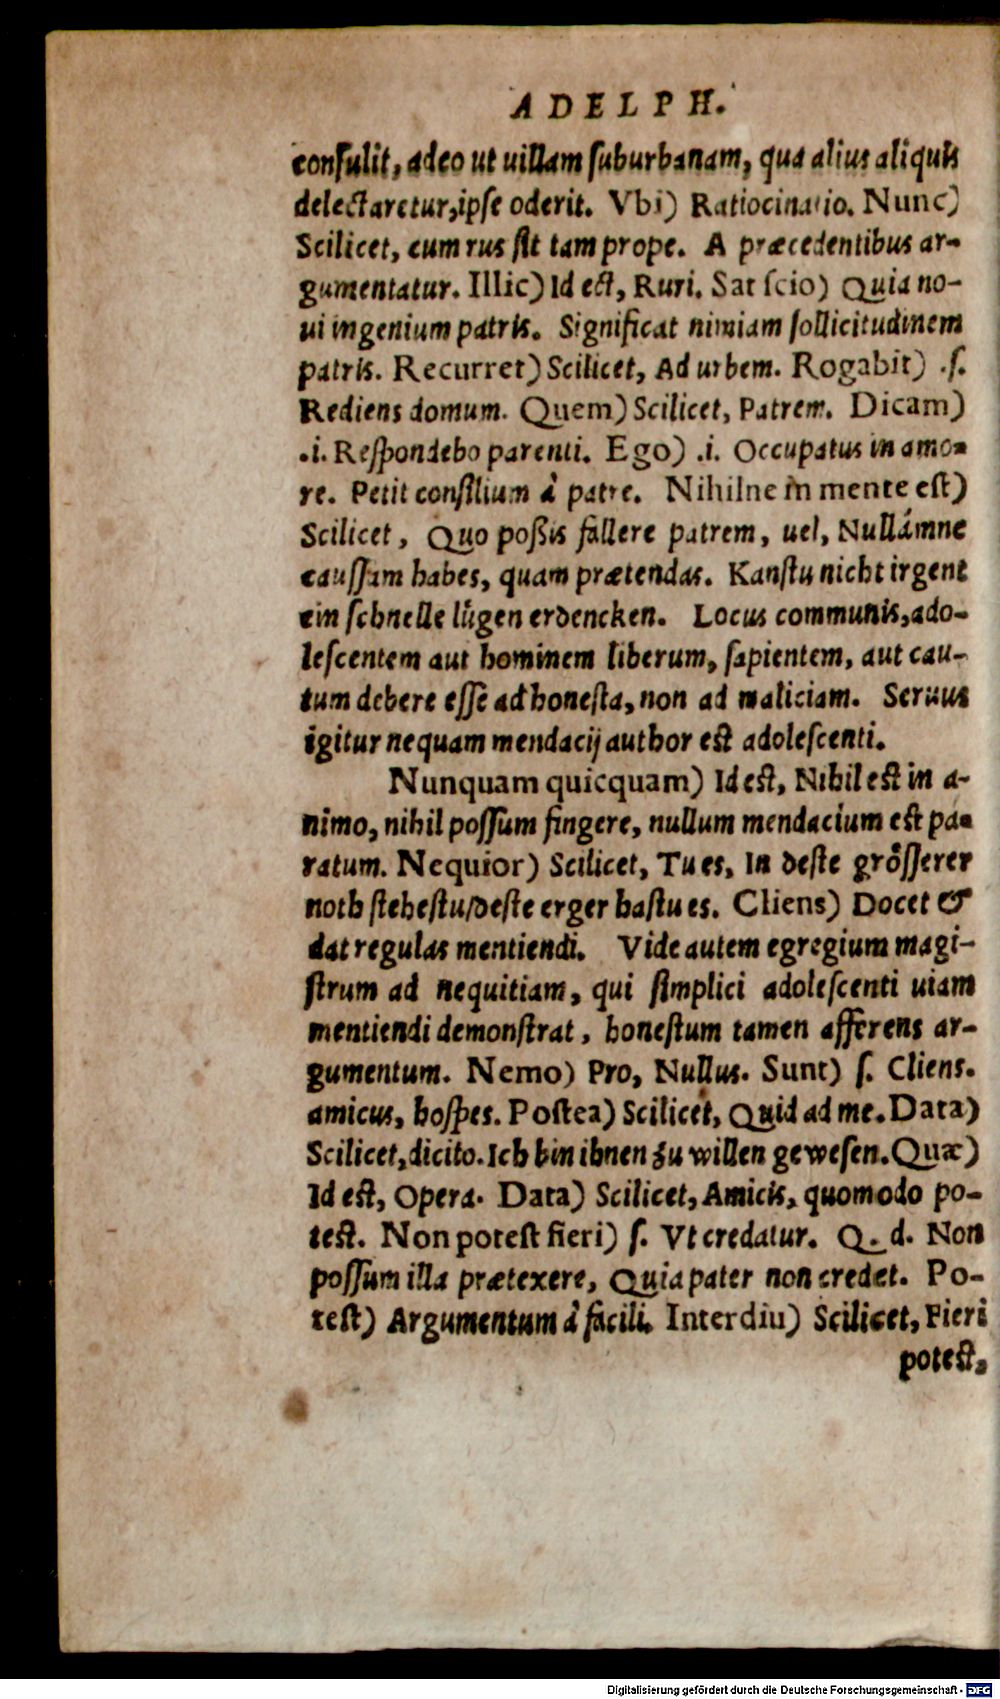 ADELPH.
consulit, adeo ut uillam suburbanam, qua alius aliquis
delectaretur, ipse oderit. Vbi) Ratiocinatio. Nunc)
Scilicet, cum rus sit tam prope. A præcedentibus ar-
gumentatur. Illic) Id est, Ruri. Sat scio) Quia no-
ui ingenium patris. Significat nimiam sollicitudinem
patris. Recurret) Scilicet, Ad urbem. Rogabit) .s.
Rediens domum. Quem) Scilicet, Patrem. Dicam)
.i. Respondebo parenti. Ego) .i. Occupatus in amo-
re. Petit consilium à patre. Nihilne in mente est)
Scilicet, Quo poßis fallere patrem, uel, Nullámne
caussam habes, quam prætendas. Kanstu nicht irgent
ein schnelle lügen erdencken. Locus communis, ado-
lescentem aut hominem liberum, sapientem, aut cau-
tum debere esse ad honesta, non ad maliciam. Seruus
igitur nequam mendacij author est adolescenti.
Nunquam quicquam) Id est, Nihil est in a-
nimo, nihil possum fingere, nullum mendacium est pa-
ratum. Nequior) Scilicet, Tu es, In deste grösserer
noth stehestu/deste erger hastu es. Cliens) Docet &
dat regulas mentiendi. Vide autem egregium magi-
strum ad nequitiam, qui simplici adolescenti uiam
mentiendi demonstrat, honestum tamen afferens ar-
gumentum. Nemo) Pro, Nullus. Sunt) s. Cliens.
amicus, hospes. Postea) Scilicet, Quid ad me. Data)
Scilicet, dicito. Ich bin ihnen zu willen gewesen. Quæ)
Id est, Opera. Data) Scilicet, Amicis, quomodo po-
test. Non potest fieri) s. Vt credatur. Q. d. Non
possum illa prætexere, Quia pater non credet. Po-
test) Argumentum à facili. Interdiu) Scilicet, Fieri
potest,
Digitalisierung gefördert durch die Deutsche Forschungsgemeinschaft - DFG